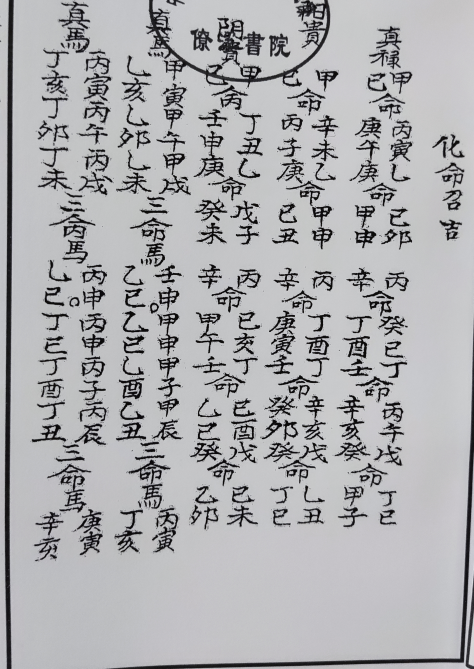 化命召吉
真禄甲己命丙寅庚午乙庚命己卯甲申丙辛命癸巳丁酉丁壬命丙午辛亥戊癸命丁巳甲子
陽貴甲己命辛未丙子乙庚命甲申己丑丙辛命丁酉庚寅丁壬命辛亥癸卯戊癸命乙丑丁巳
陰貴甲己丙丁丑壬申乙庚命戊子癸未丙辛命己亥甲午丁壬命己酉乙巳戊癸命己未乙卯
真馬甲寅甲午甲戌乙亥乙卯乙未三命馬壬申甲申甲子甲辰乙巳乙巳乙酉乙丑三命馬丙寅丁亥
真馬丙寅丙午丙戌丁亥丁卯丁未三丙馬丙申丙申丙子丙辰乙巳丁巳丁酉丁丑三命馬庚寅辛亥
僚書院